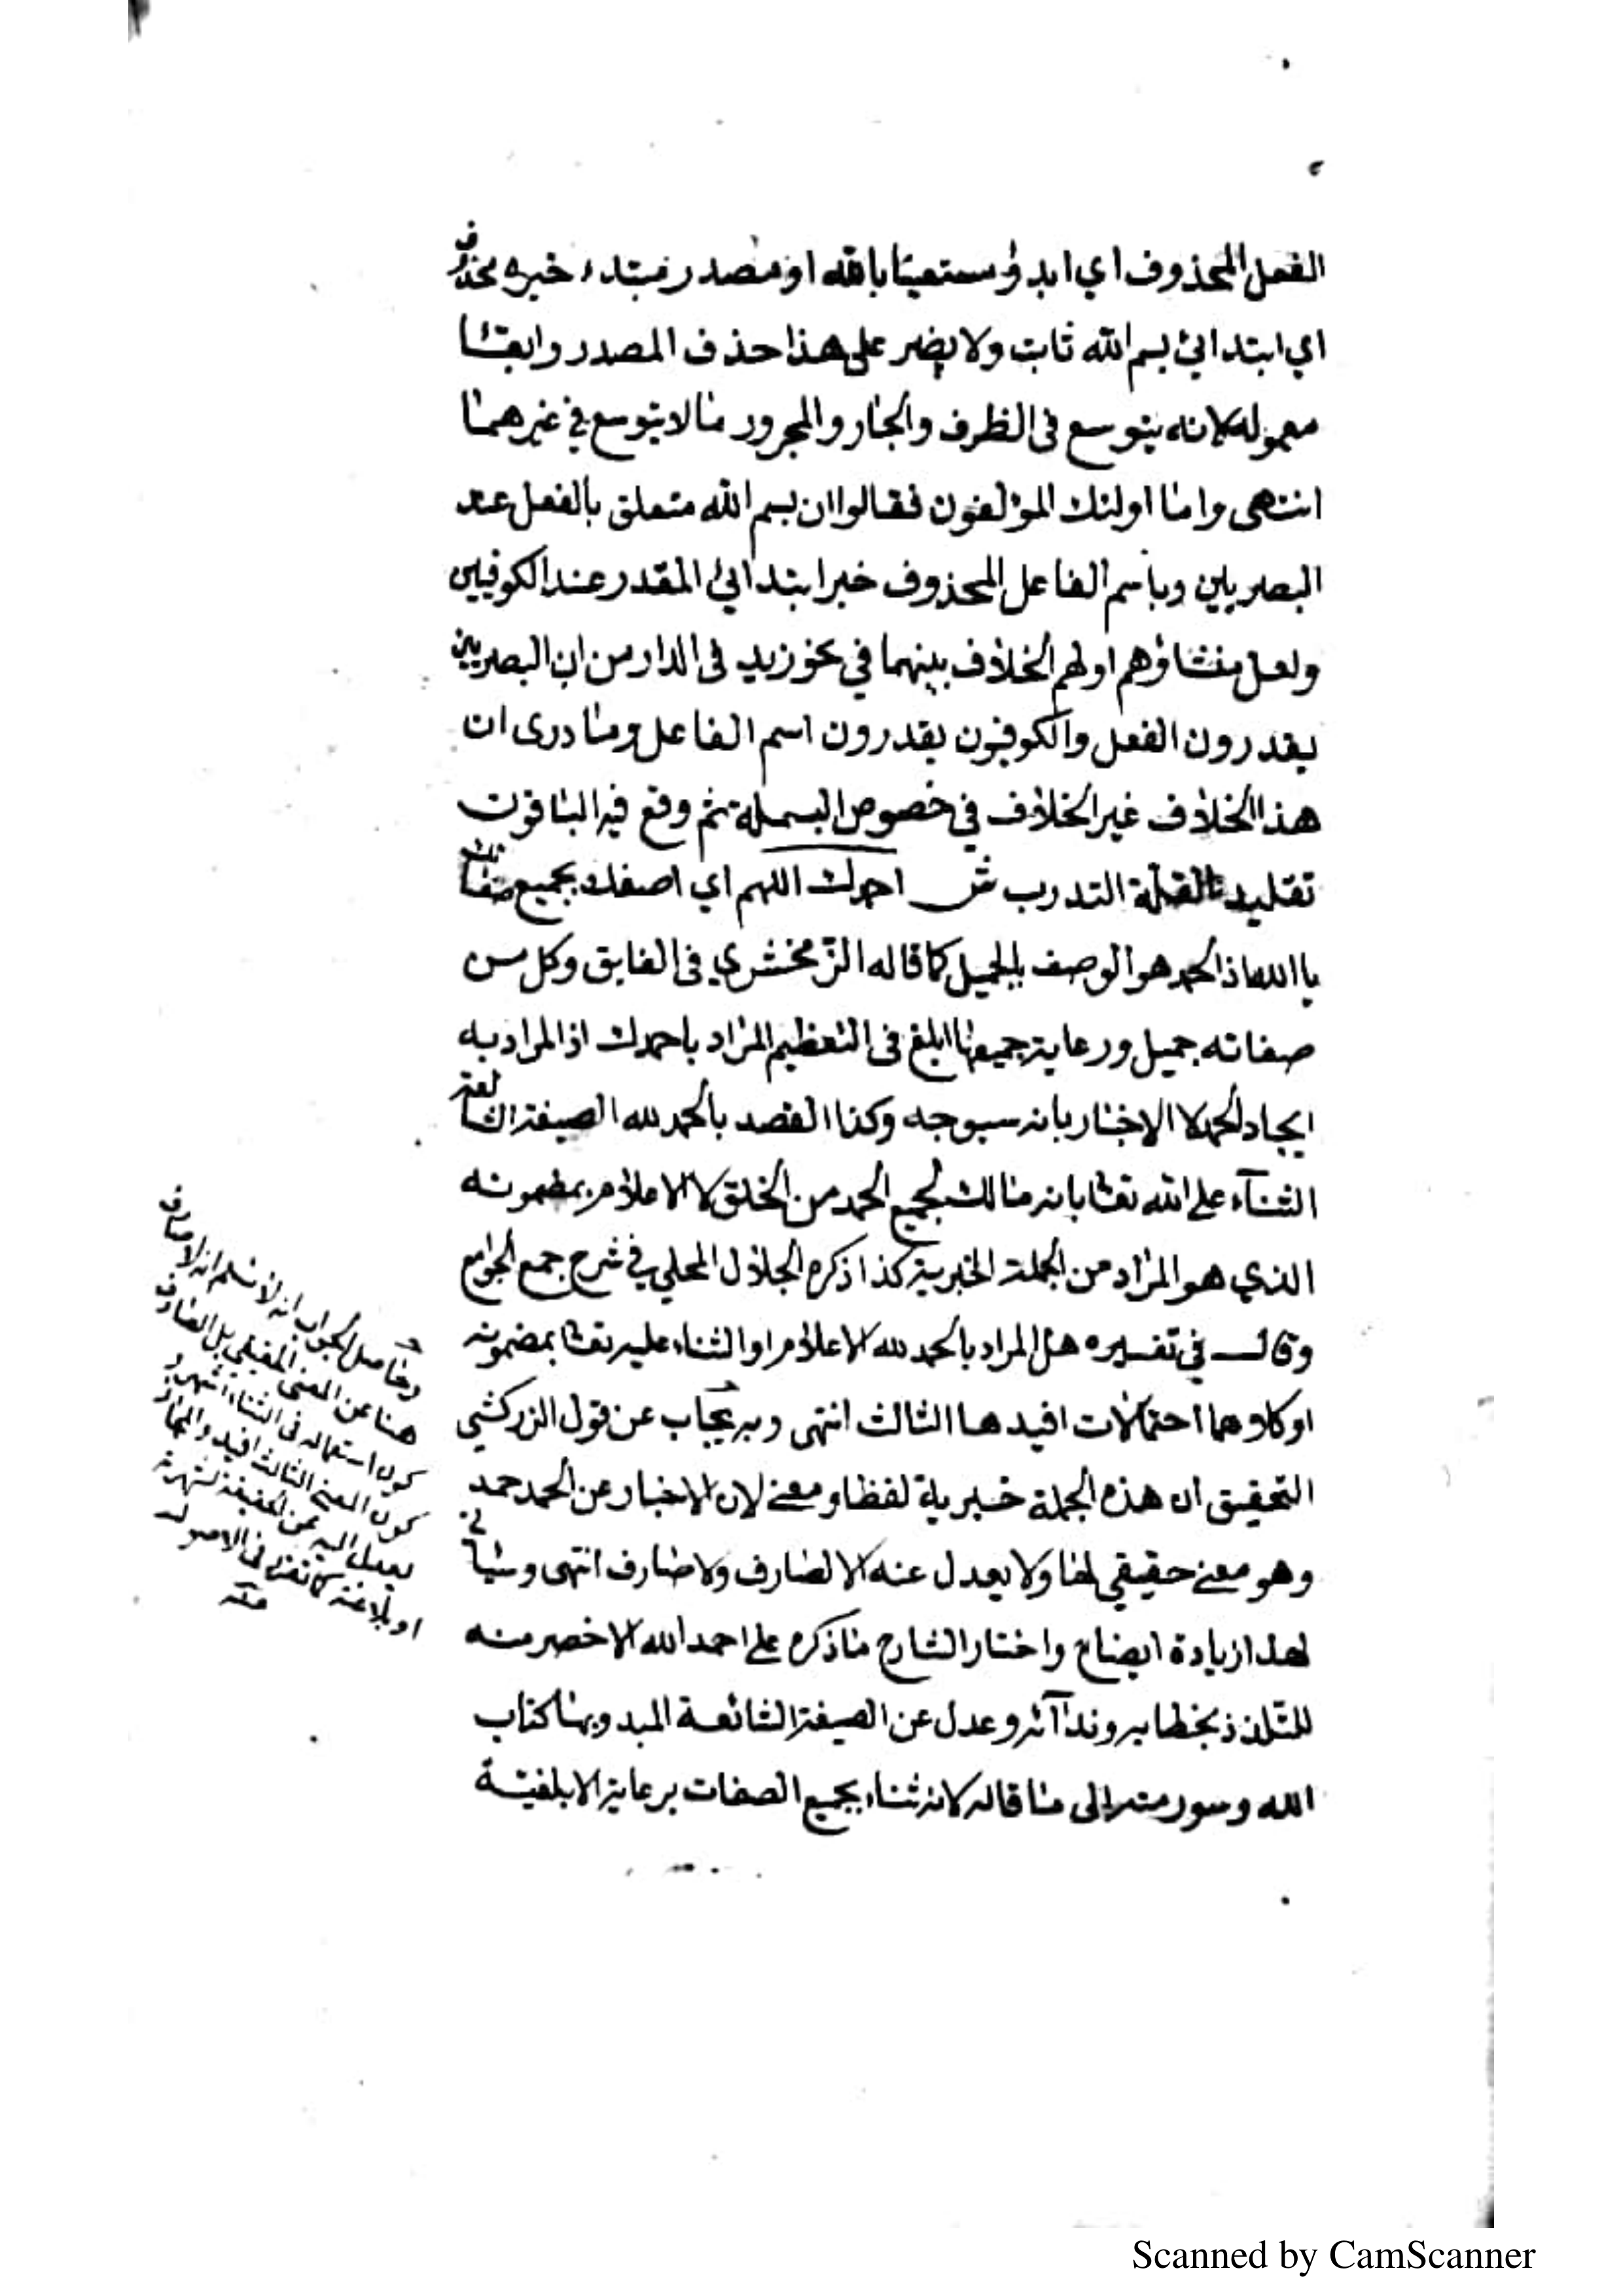 الفعل المحذوف اي ابدؤ مستعينا بالله او مصدر مبتدء خبره محذوف
اي ابتدائي بسم الله ثابت ولا يضر على هذا حذف المصدر وابقا
معموله لانه يتوسع فى الظرف والجار والمجرور ما لا يتوسع في غيرهما
انتهى واما اولئك المؤلفون فقالوا ان بسم الله متعلق بالفعل عند
البصريين وباسم الفاعل المحذوف خبر ابتدائي المقدر عند الكوفيين
ولعل منشاؤهم اولهم الخلاف بينهما في نحو زيد فى الدار من ان البصريين
يقدرون الفعل والكوفيون يقدرون اسم الفاعل وما درى ان
هذا الخلاف غير الخلاف في خصوص البسملة ثم وقع فيه الباقون
تقليدا لقلة التدرب ش احمدك اللهم اي اصفك بجميع صفاتك
يا الله اذ الحمد هو الوصف بالجميل كما قاله الزمخشري فى الفايق وكل من
صفاته جميل ورعاية جميعها ابلغ فى التعظيم المراد باحمدك اذ المراد به
ايجاد الحمد لا الاخبار بانه سيوجه وكذا القصد بالحمد لله الصيغة الشا
الثنآء على الله تعا بانه مالك لجميع الحمد من الخلق لا الاعلام بمضمونه
الذي هو المراد من الجملة الخبرية كذا ذكره الجلال المحلي في شرح جمع الجوامع
وقال في تفسيره هل المراد بالحمد لله الاعلام او الثناء عليه تعا بمضمونه
او كلاهما احتمالات افيدها الثالث انتهى وبه يجاب عن قول الزركشي
التحقيق ان هذه الجملة خبرية لفظا ومعنى لان الاخبار عن الحمد حمد
وهو معنى حقيقي لها ولا يعدل عنه الا لصارف ولا صارف انتهى وسيأتي
لهذا زيادة ايضاح واختار الشارح ما ذكره على احمد الله الاخصر منه
للتلذذ بخطابه وندآئه وعدل عن الصيغة الشائعة المبدو بها كتاب
الله وسورمنه الى ما قاله لانه ثناء بجميع الصفات برعاية الابلغية
وحاصل الجواب انه لا نسلم انه لا صارف
هنا عن المعنى الحقيقي بل الصارف
كون استعماله فى الثناء اشهر و
كون المعنى الثالث افيد والمجاز
يعدل اليه عن الحقيقة لشهرته
او بلاغته كما تقرر فى الاصول
منه
Scanned by CamScanner